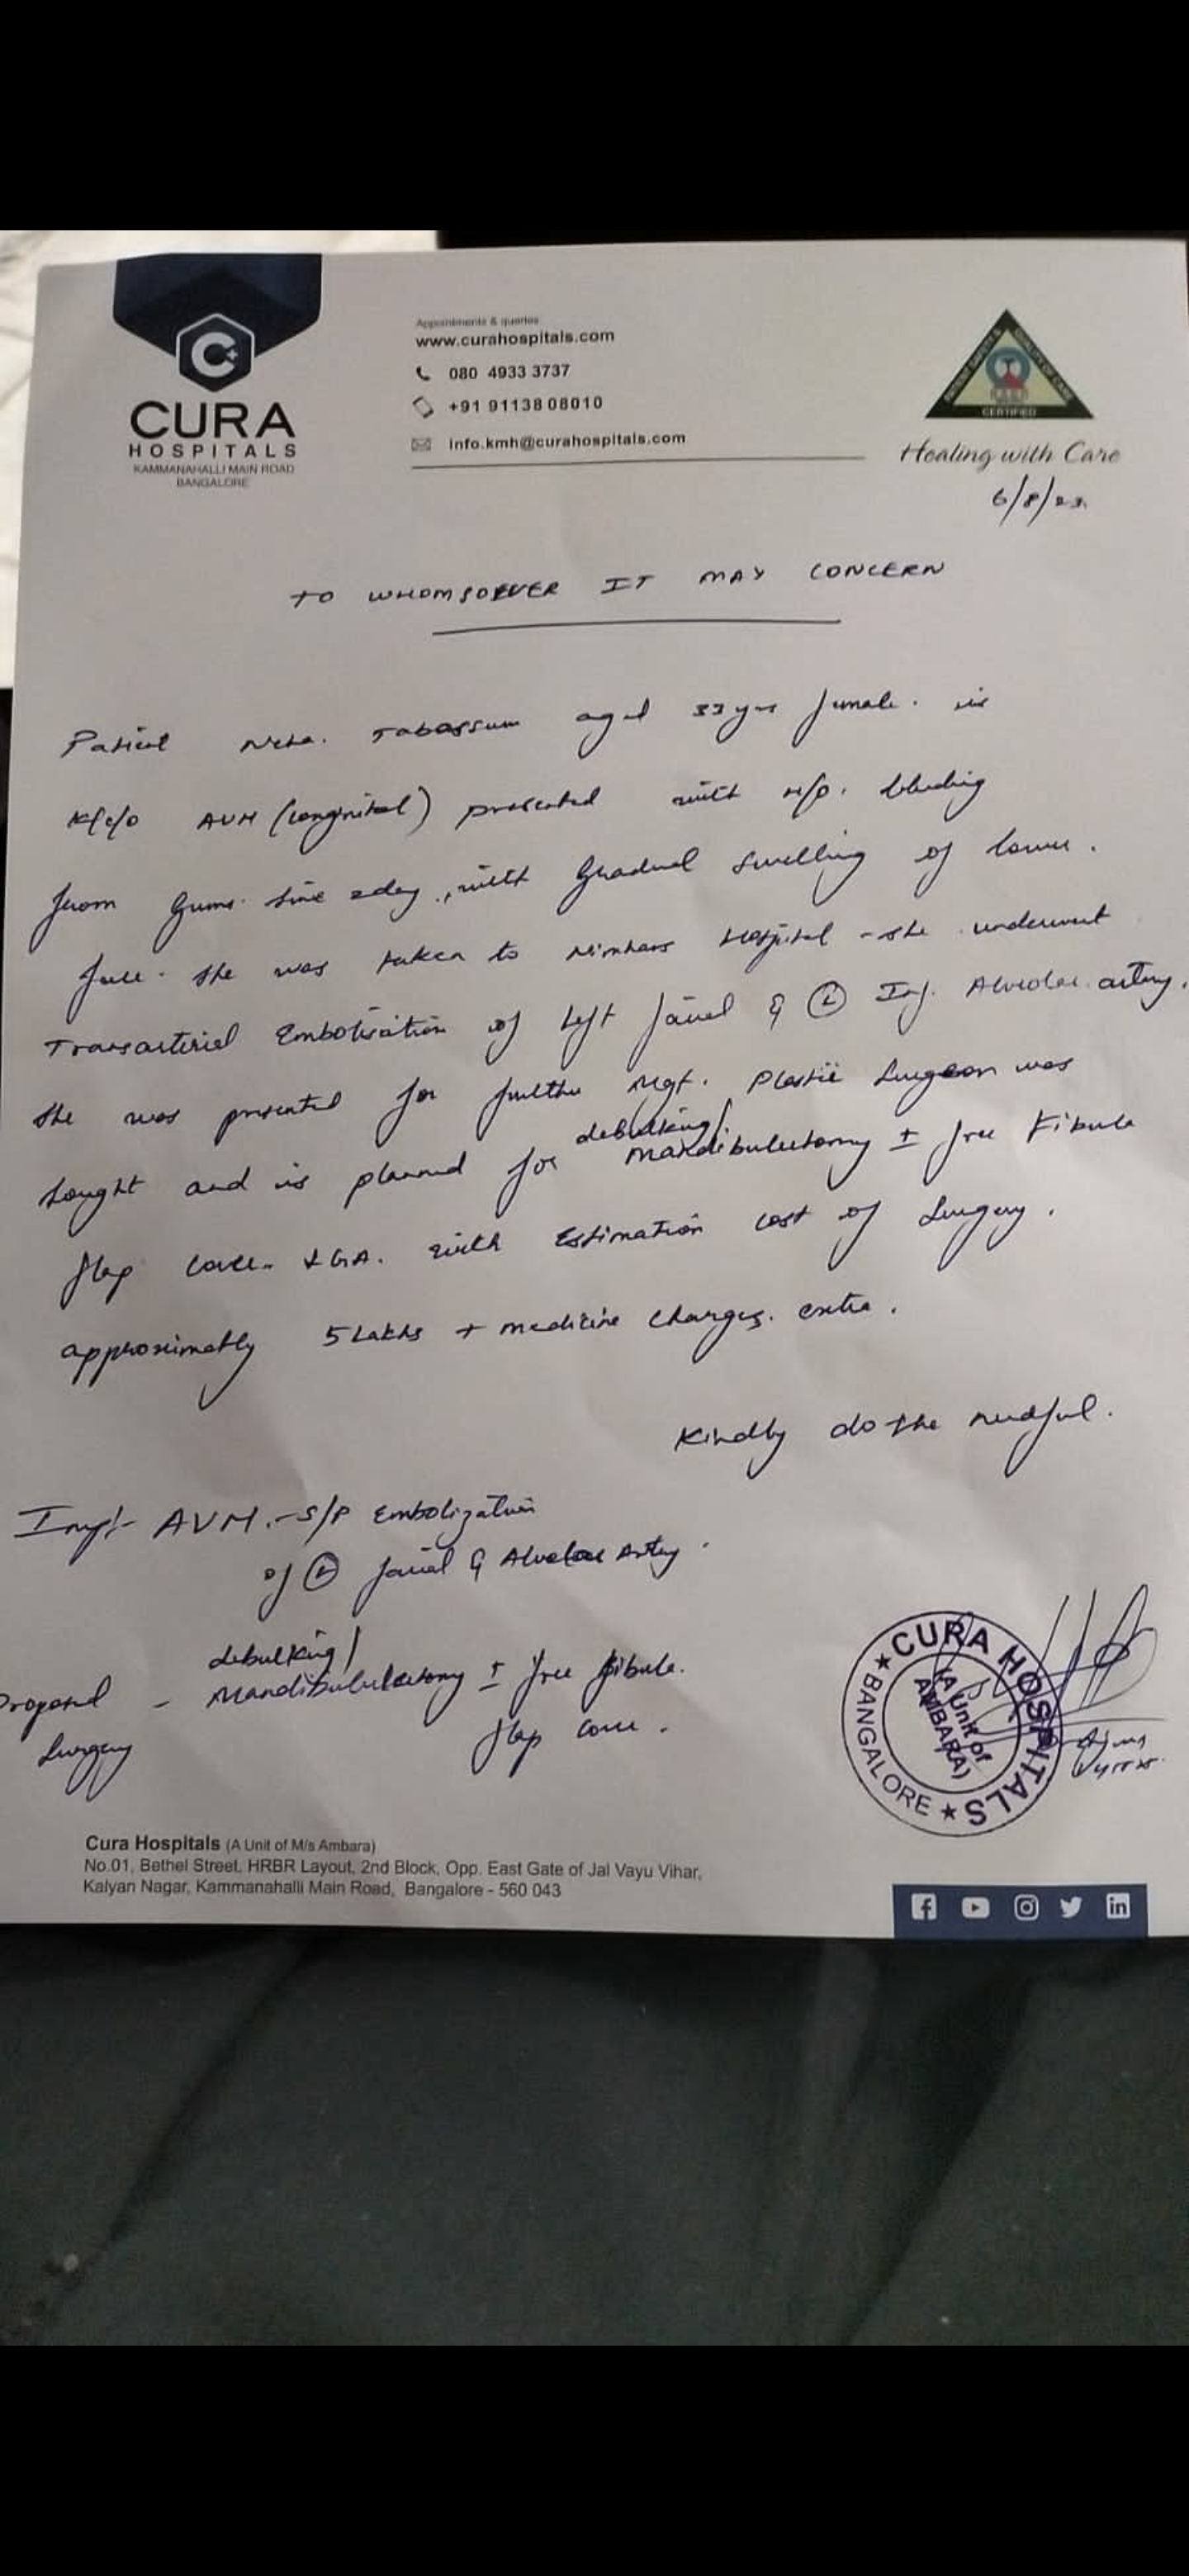 CURA
HOSPITALS
KAMMANAHALLI MAIN ROAD
BANGALORE
Appointments & queries
www.curahospitals.com
080 4933 3737
+91 91138 08010
info.kmh@curahospitals.com
CERTIFIED
Healing with Care
6/8/23
TO WHOMSOEVER IT MAY CONCERN
Patient Tabassum aged 33 yrs female. is
K/c/o AVM (Congenital) presented with H/o. bleeding
from Gums. since 2day, with Gradual Swelling of lower.
face. She was taken to Nimhans Hospital - she underwent
Transarterial Embolisation of Left facial & (L) Inf. Alveolar artery.
She was presented for further Mgt. Plastic Surgeon was
sought and is planned for debulking/ Mandibulectomy ± free Fibula
flap cover. GA. with Estimation cost of Surgery.
approximately 5 Lakhs + medicine charges. extra.
Kindly do the needful.
Imp:- AVM. - S/P Embolization
of (L) facial & Alveolar Artery.
debulking/
Proposed - Mandibulectomy ± free fibula.
Surgery flap cover.
★ CURA HOSPITALS ★ BANGALORE
(A Unit of
AMBARA)
Cura Hospitals (A Unit of M/s Ambara)
No.01, Bethel Street, HRBR Layout, 2nd Block, Opp. East Gate of Jal Vayu Vihar,
Kalyan Nagar, Kammanahalli Main Road, Bangalore - 560 043